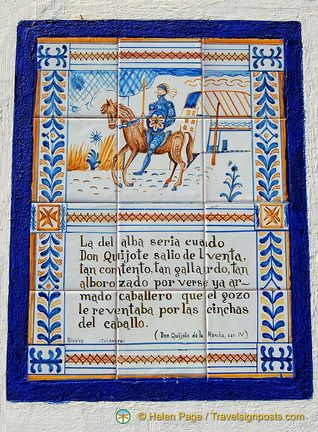 La del alba seria cuando
Don Quijote salio de l venta,
tan contento, tan gallardo, tan
alboro zado por verse ya ar-
mado caballero que el gozo
le reventaba por las cinchas
del caballo.
(Don Quijote de la Mancha, cap. IV)
Talavera
© Helen Page / Travelsignposts.com